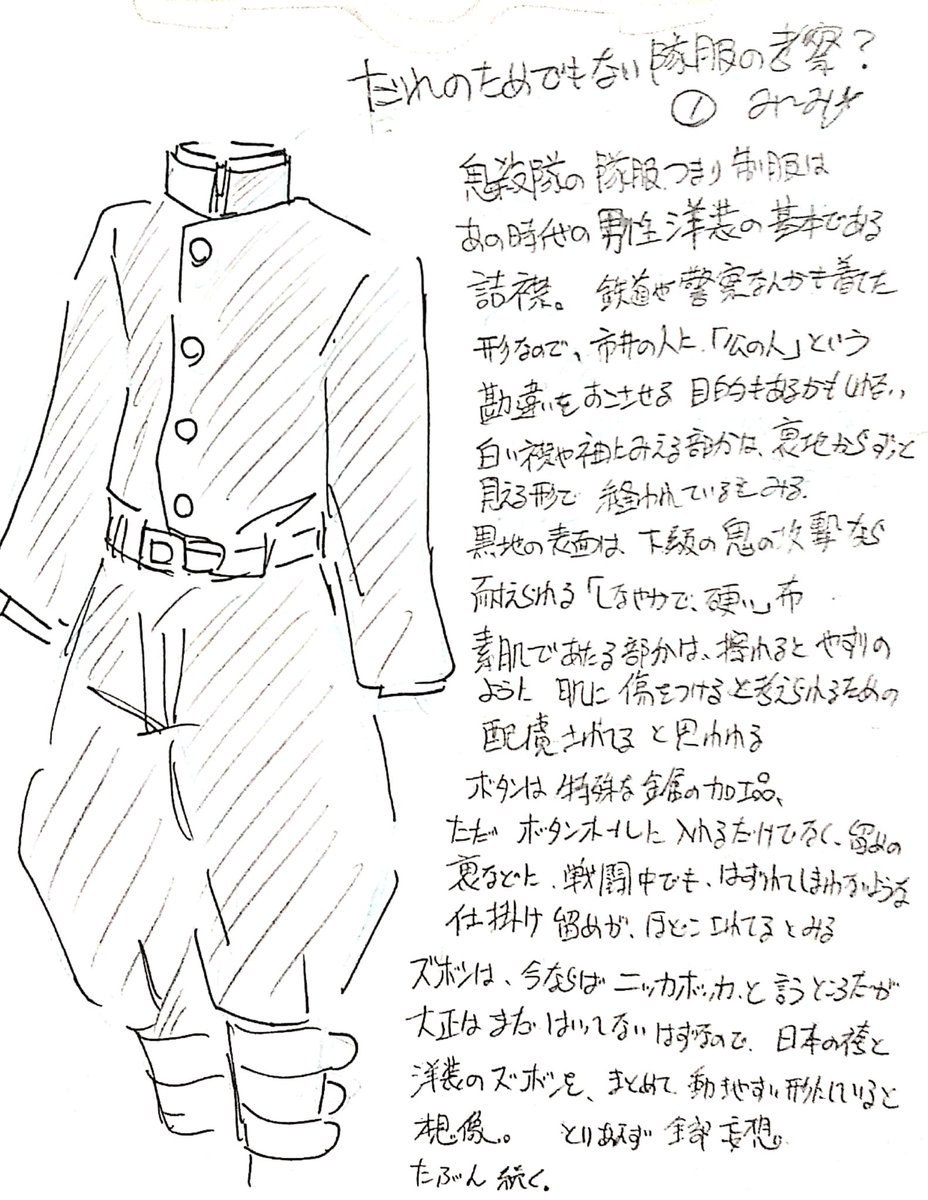 だれのためでもない隊服の考察?
① みーみ
鬼殺隊の隊服、つまり制服は
あの時代の男性洋装の基本である
詰襟。鉄道や警察なんかも着てた
形なので、市井の人に、「公の人」という
勘違いをおこさせる目的もあるかもしれない
白い襟や袖にみえる部分は、裏地からずっと
見える形で縫われているとみる。
黒地の表面は、下級の鬼の攻撃なら
耐えられる「しなやかで、硬い」布
素肌であたる部分は、擦れるとやすりの
ように肌に傷をつけると考えられるための
配慮されてると思われる
ボタンは特殊な金属の加工品、
ただボタンホールに入れるだけでなく、留めの
裏などに、戦闘中でも、はずれてしまわないような
仕掛け留めが、ほどこされてるとみる
ズボンは、今ならばニッカボッカ、と言うところだが
大正はまだはいってないはずなので、日本の袴と
洋装のズボンを、まとめて動きやすい形にしていると
想像。 とりあえず全部妄想。
たぶん続く。